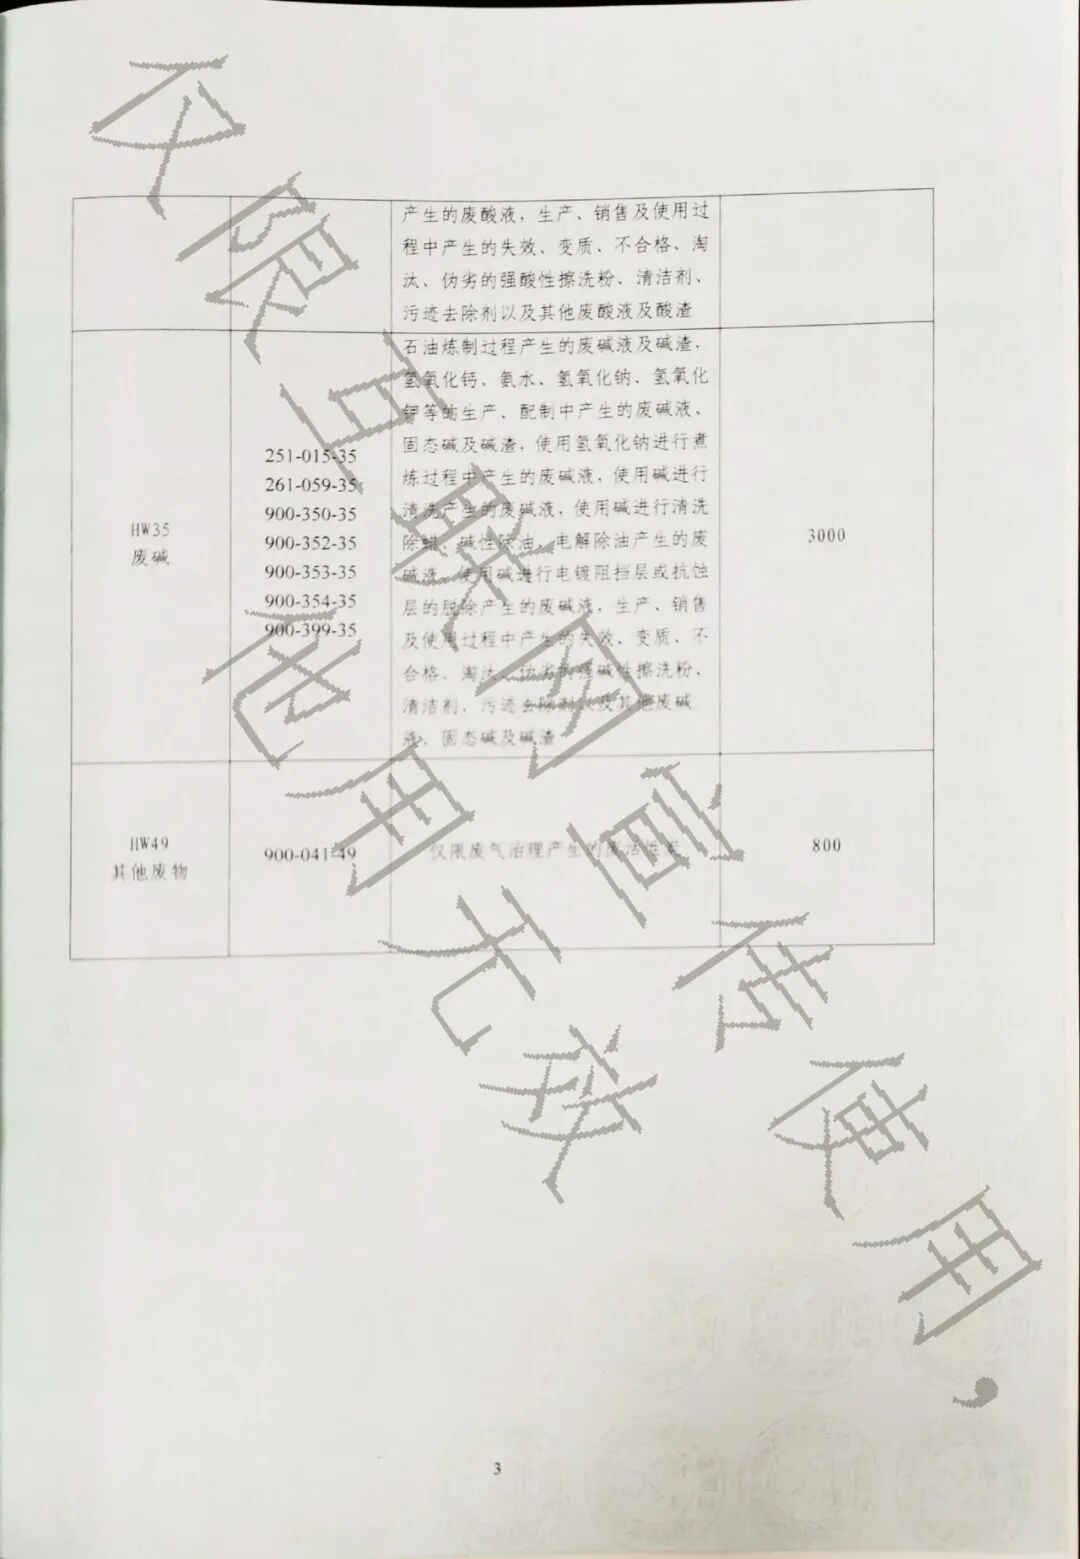 产生的废酸液，生产、销售及使用过
程中产生的失效、变质、不合格、淘
汰、伪劣的强酸性擦洗粉、清洁剂、
污迹去除剂以及其他废酸液及酸渣
HW35
废碱
251-015-35
261-059-35
900-350-35
900-352-35
900-353-35
900-354-35
900-399-35
石油炼制过程产生的废碱液及碱渣，
氢氧化钙、氨水、氢氧化钠、氢氧化
钾等的生产、配制中产生的废碱液、
固态碱及碱渣，使用氢氧化钠进行煮
炼过程中产生的废碱液，使用碱进行
清洗产生的废碱液，使用碱进行清洗
除蜡、碱性除油、电解除油产生的废
碱液，使用碱进行电镀阻挡层或抗蚀
层的脱除产生的废碱液，生产、销售
及使用过程中产生的失效、变质、不
合格、淘汰、伪劣的强碱性擦洗粉、
清洁剂、污迹去除剂以及其他废碱
液、固态碱及碱渣
3000
HW49
其他废物
900-041-49
仅限废气治理产生的废活性炭
800
仅限互联网宣传使用，
他用无效
3